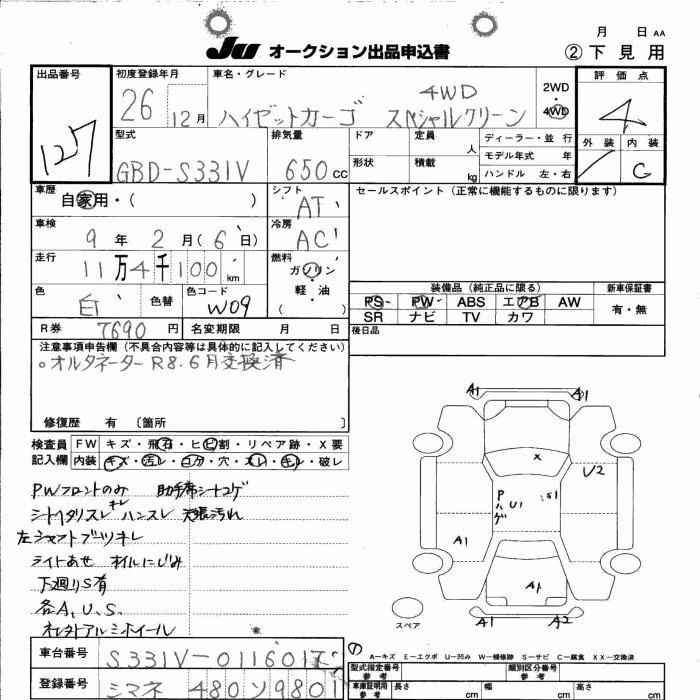 月 日 AA
JU オークション出品申込書 ②下見用
出品番号 127
初度登録年月 26 12月
車名・グレード 4WD
ハイゼットカーゴ スペシャルクリーン
2WD・4WD
評価点 4
外装 内装 G
型式 GBD-S331V
排気量 650cc
ドア 定員 人
形状 積載 kg
ディーラー・並行
モデル年式 年
ハンドル 左・右
車歴 自家用・( )
シフト AT
セールスポイント (正常に機能するものに限ります)
車検 9年2月(6日)
冷房 AC
走行 11万4千100km
燃料 ガソリン・軽油・( )
色 白 色替 色コード W09
R券 7690円 名変期限 月 日
装備品 (純正品に限る)
PS PW ABS エアB AW
SR ナビ TV カワ
新車保証書 有・無
後日品
注意事項申告欄 (不具合内容等は具体的に記入してください)
○オルタネーター R8.6月交換済
修復歴 有 〔箇所 〕
検査員記入欄
FW キズ・飛石・ヒビ割・リペア跡・X要
内装 キズ・汚レ・コゲ・穴・スレ・キレ・破レ
PWフロントのみ 助手席シートコゲ
シートヘタリスレキレ ハンスレ 天張汚れ
左シャフトブーツキレ
ライトあせ オイルにじみ
下廻りS有
各A、U、S、
社外アルミホイール
A1 A1
X
U2
Pハゲ U1 S1
A1
A1
A1 A2
スペア
A-キズ E-エクボ U-凹み W-補修跡 S-サビ C-腐食 XX-交換済
車台番号 S331V-0116017
登録番号 シマネ 480ソ9801
型式指定番号 参考
類別区分番号 参考
車庫証明用参考 長さ cm 幅 cm 高さ cm